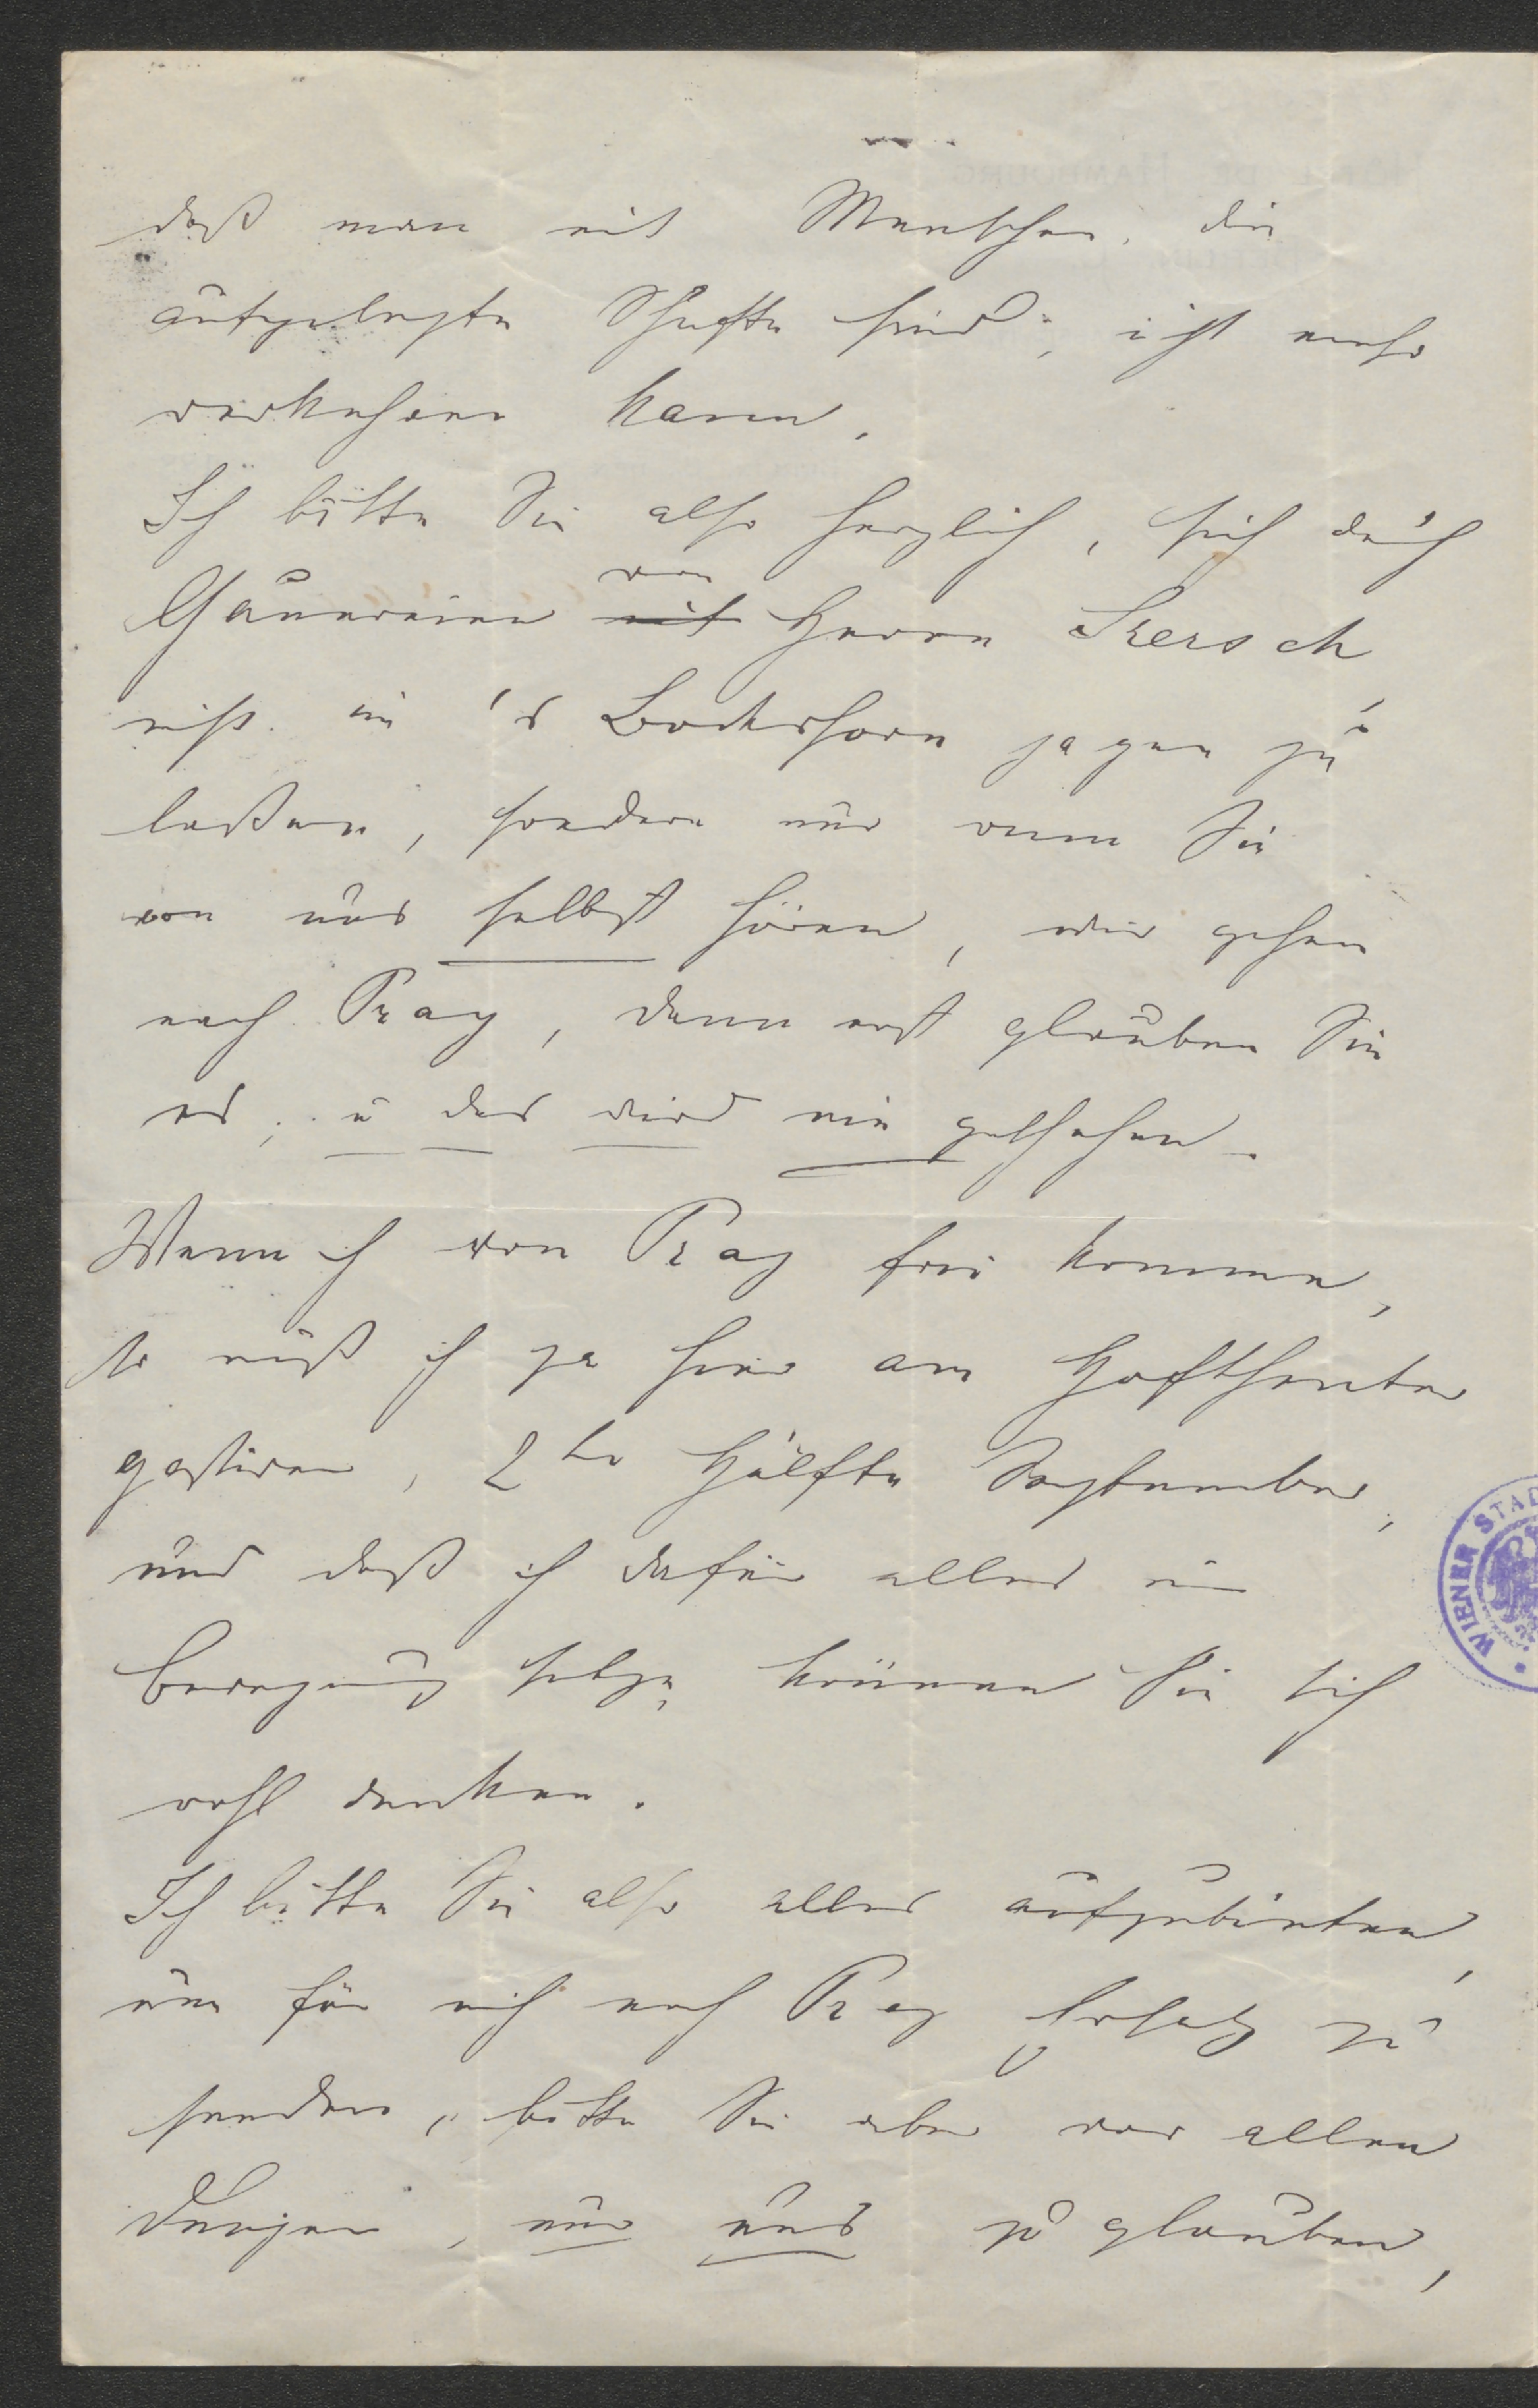 daß man mit Menschen, die
ausgelegte Schufte sind, nicht mehr
verkehren kann.
Ich bitte Sie also herzlich, sich durch
Gaunereien von
mit Herrn Skersch
nicht in's Bockshorn jagen zu
laßen, sondern nur wenn Sie
von uns selbst hören, wir gehen
nach Prag, dann erst glauben Sie
es, u das wird nie geschehen.
Wenn ich von Prag frei komme,
so muß ich ja hier am Hoftheater
gastiren, 2te Hälfte September,
und daß ich dafür alles in
Bewegung setze, können Sie sich
wohl denken.
Ich bitte Sie also alles aufzubieten,
um für mich nach Prag Ersatz zu
senden, bitte Sie aber vor allen
Dingen, nur uns zu glauben,
WIENER STAD